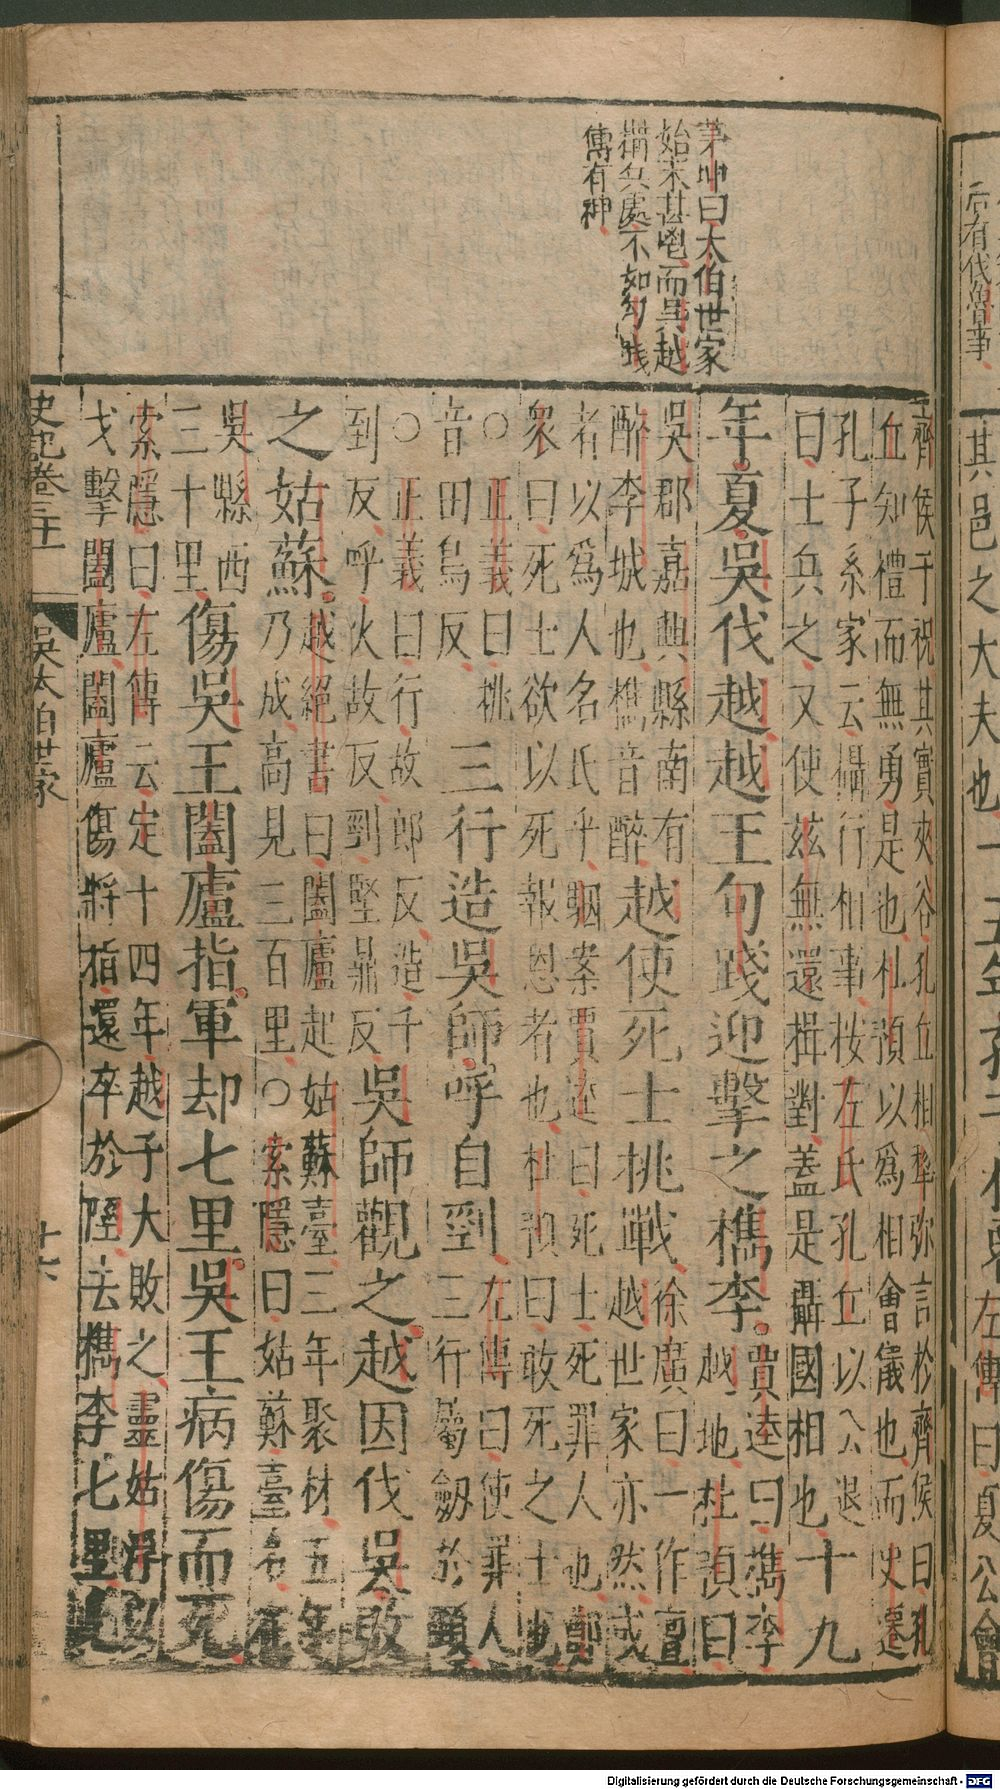 茅坤曰太伯世家
始末甚鬯而吳越
搆兵處不如勾踐
傳有神
齊侯于祝其實夾谷孔丘相犂弥言於齊侯曰孔
丘知禮而無勇是也杜預以爲相會儀也而史遷
孔子系家云攝行相事按左氏孔丘以公退
曰士兵之又使茲無還揖對蓋是攝國相也十九
年夏吳伐越越王句踐迎擊之檇李賈逵曰檇李
越地杜預曰
吳郡嘉興縣南有
醉李城也檇音醉越使死士挑戰徐廣曰一作亶
越世家亦然或
者以爲人名氏乎駰案賈逵曰死士死罪人也鄭
衆曰死士欲以死報恩者也杜預曰敢死之士也
○正義曰挑
音田鳥反三行造吳師呼自剄左傳曰使罪人
三行屬劔於頸
○正義曰行故郎反造千
到反呼火故反剄堅鼎反吳師觀之越因伐吳敗
之姑蘇越絕書曰闔廬起姑蘇臺三年聚材五年
乃成高見三百里○索隱曰姑蘇臺名在
吳縣西
三十里傷吳王闔廬指軍却七里吳王病傷而死
索隱曰左傳云定十四年越子大敗之靈姑浮以
戈擊闔廬闔廬傷將指還卒於陘去檇李七里
史記卷三十一
吳太伯世家
十六
后有伐魯事
其邑之大夫也十五年孔子
左傳曰夏公會
Digitalisierung gefördert durch die Deutsche Forschungsgemeinschaft - DFG